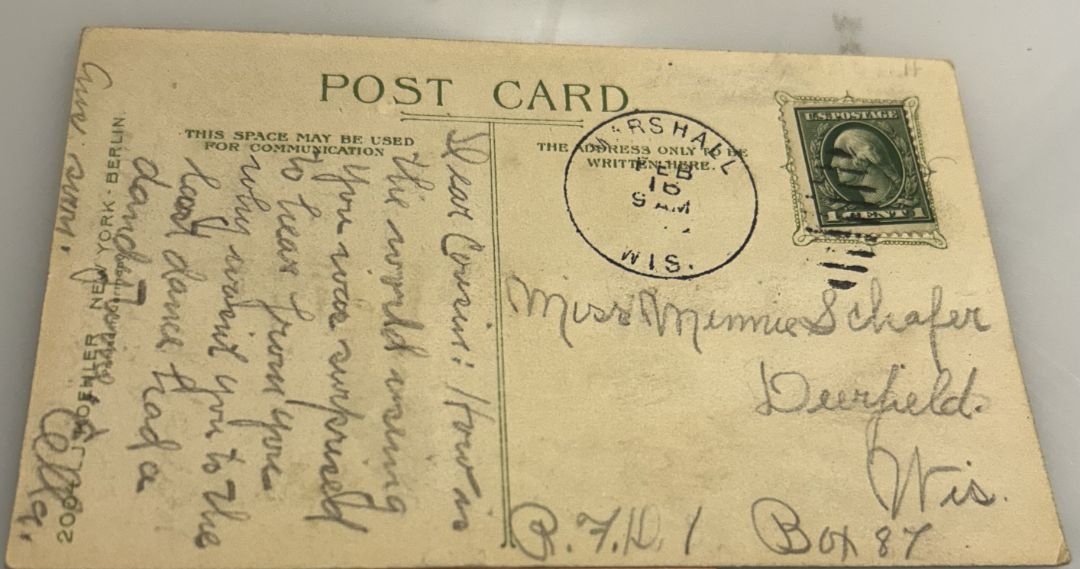 POST CARD.
THIS SPACE MAY BE USED
FOR COMMUNICATION
THE ADDRESS ONLY TO BE
WRITTEN HERE.
MARSHALL
FEB
16
9 AM
WIS.
U.S. POSTAGE
1 CENT 1
Dear Cousin: How is
the world using
you was surprised
to hear from you
why wasint you to the
hard dance had a
dandy
Ella.
Miss Minnie Schafer
Deerfield.
Wis.
R.F.D. 1 Box 87
KOEHLER NEW YORK - BERLIN.